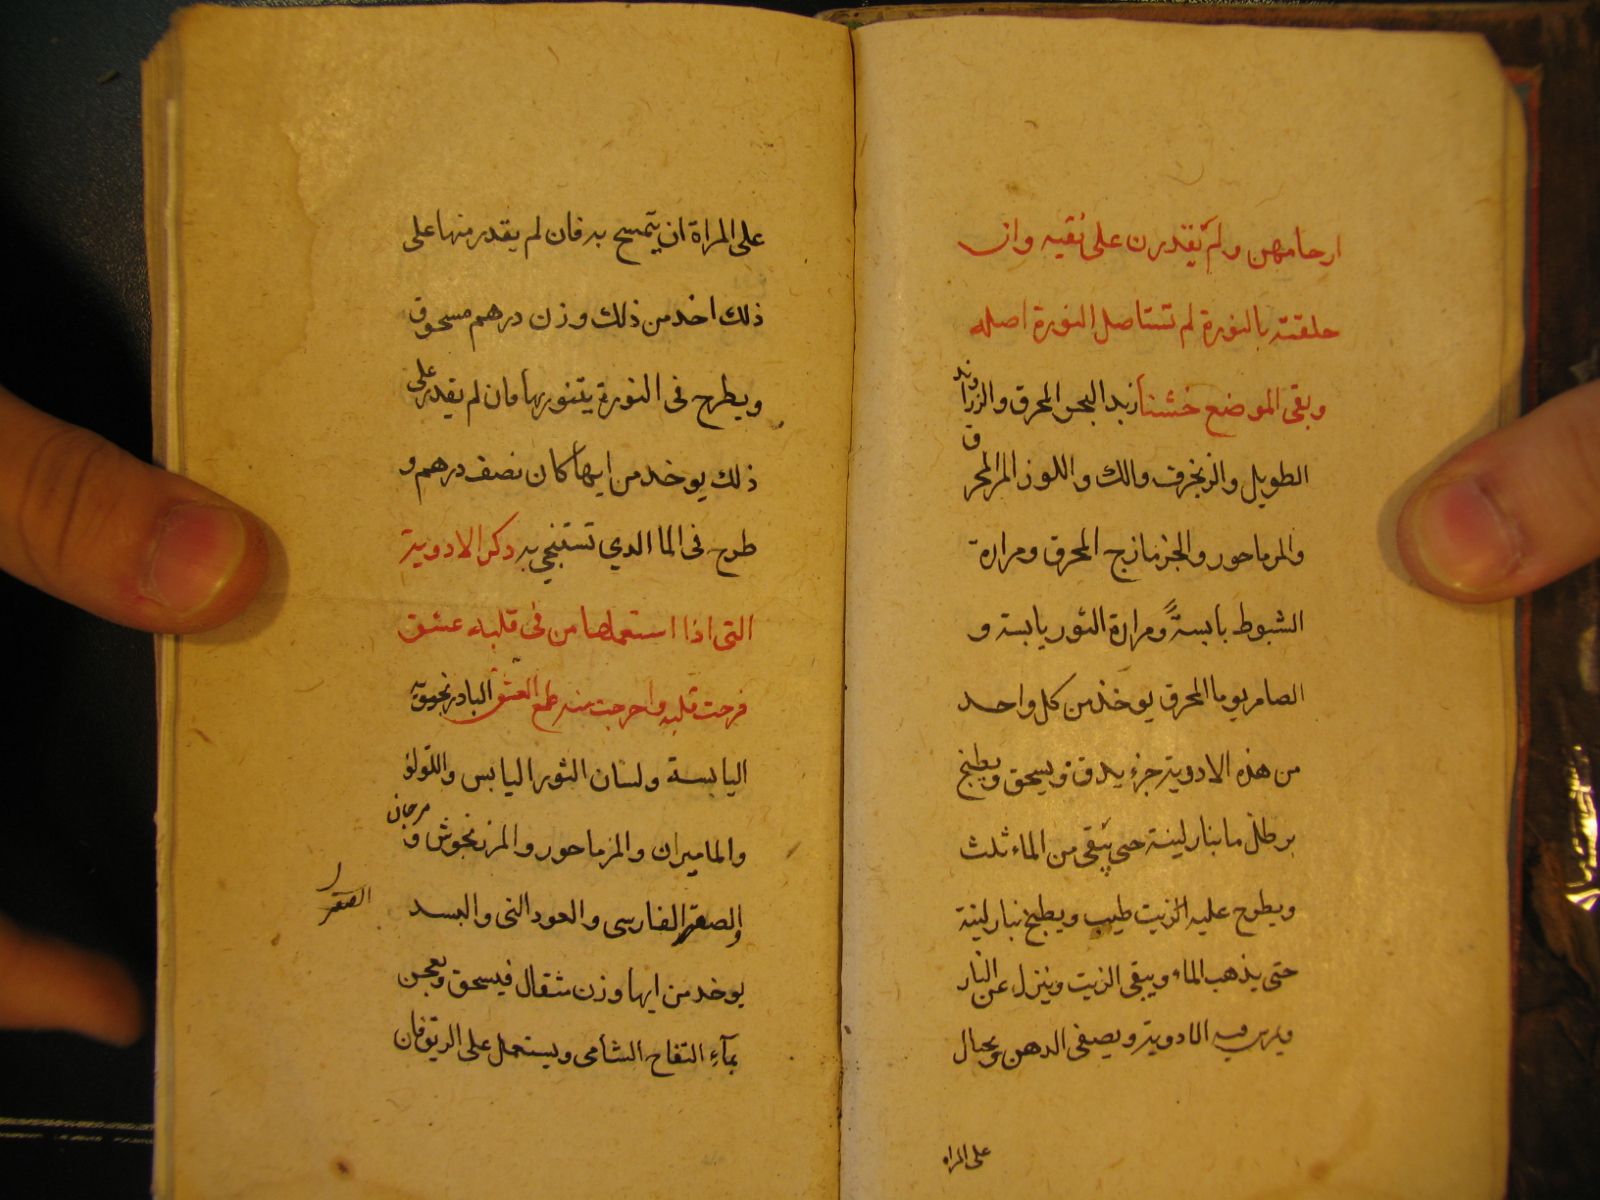 ارحامهن ولم يقدرن على نقيه وان
حلقته بالنورة لم تستاصل النورة اصله
وبقى الموضع خشنا زبد البحر المحرق والزراوند
الطويل والزنجرف والك واللوز المر المحرق
والمرماحور والجزمازج المحرق ومرارة
الشبوط يابسة ومرارة الثور يابسة و
الصامريوما المحرق يوخذ من كل واحد
من هذه الادوية جزء يدق ويسحق ويطبخ
برطل ما بنار لينة حتى يبقى من الماء ثلث
ويطرح عليه الزيت طيب ويطبخ بنار لينة
حتى يذهب الماء ويبقى الزيت وينزل عن النار
ويمرس فيه الادوية ويصفى الدهن ويحال
على المراه
على المراة ان يتمسح به فان لم يقدر منها على
ذلك اخد من ذلك وزن درهم مسحوق
ويطرح فى النورة يتنور بها فان لم يقدر على
ذلك يوخد من ايها كان نصف درهم و
طرح فى الما الدي تستنجي به دكر الادوية
التى اذا استعملها من فى قلبه عشق
فرحت قلبه واخرجت منه طمع العشق البادرنجبويه
اليابسة ولسان الثور اليابس واللولو
والماميران والمرماحور والمرزنجوش و مرجان
والصعتر الفارسى والعود النى والبسد
الصعتر
يوخد من ايها وزن مثقال فيسحق ويعجن
بمآء التفاح الشامى ويستعمل على الريق فان